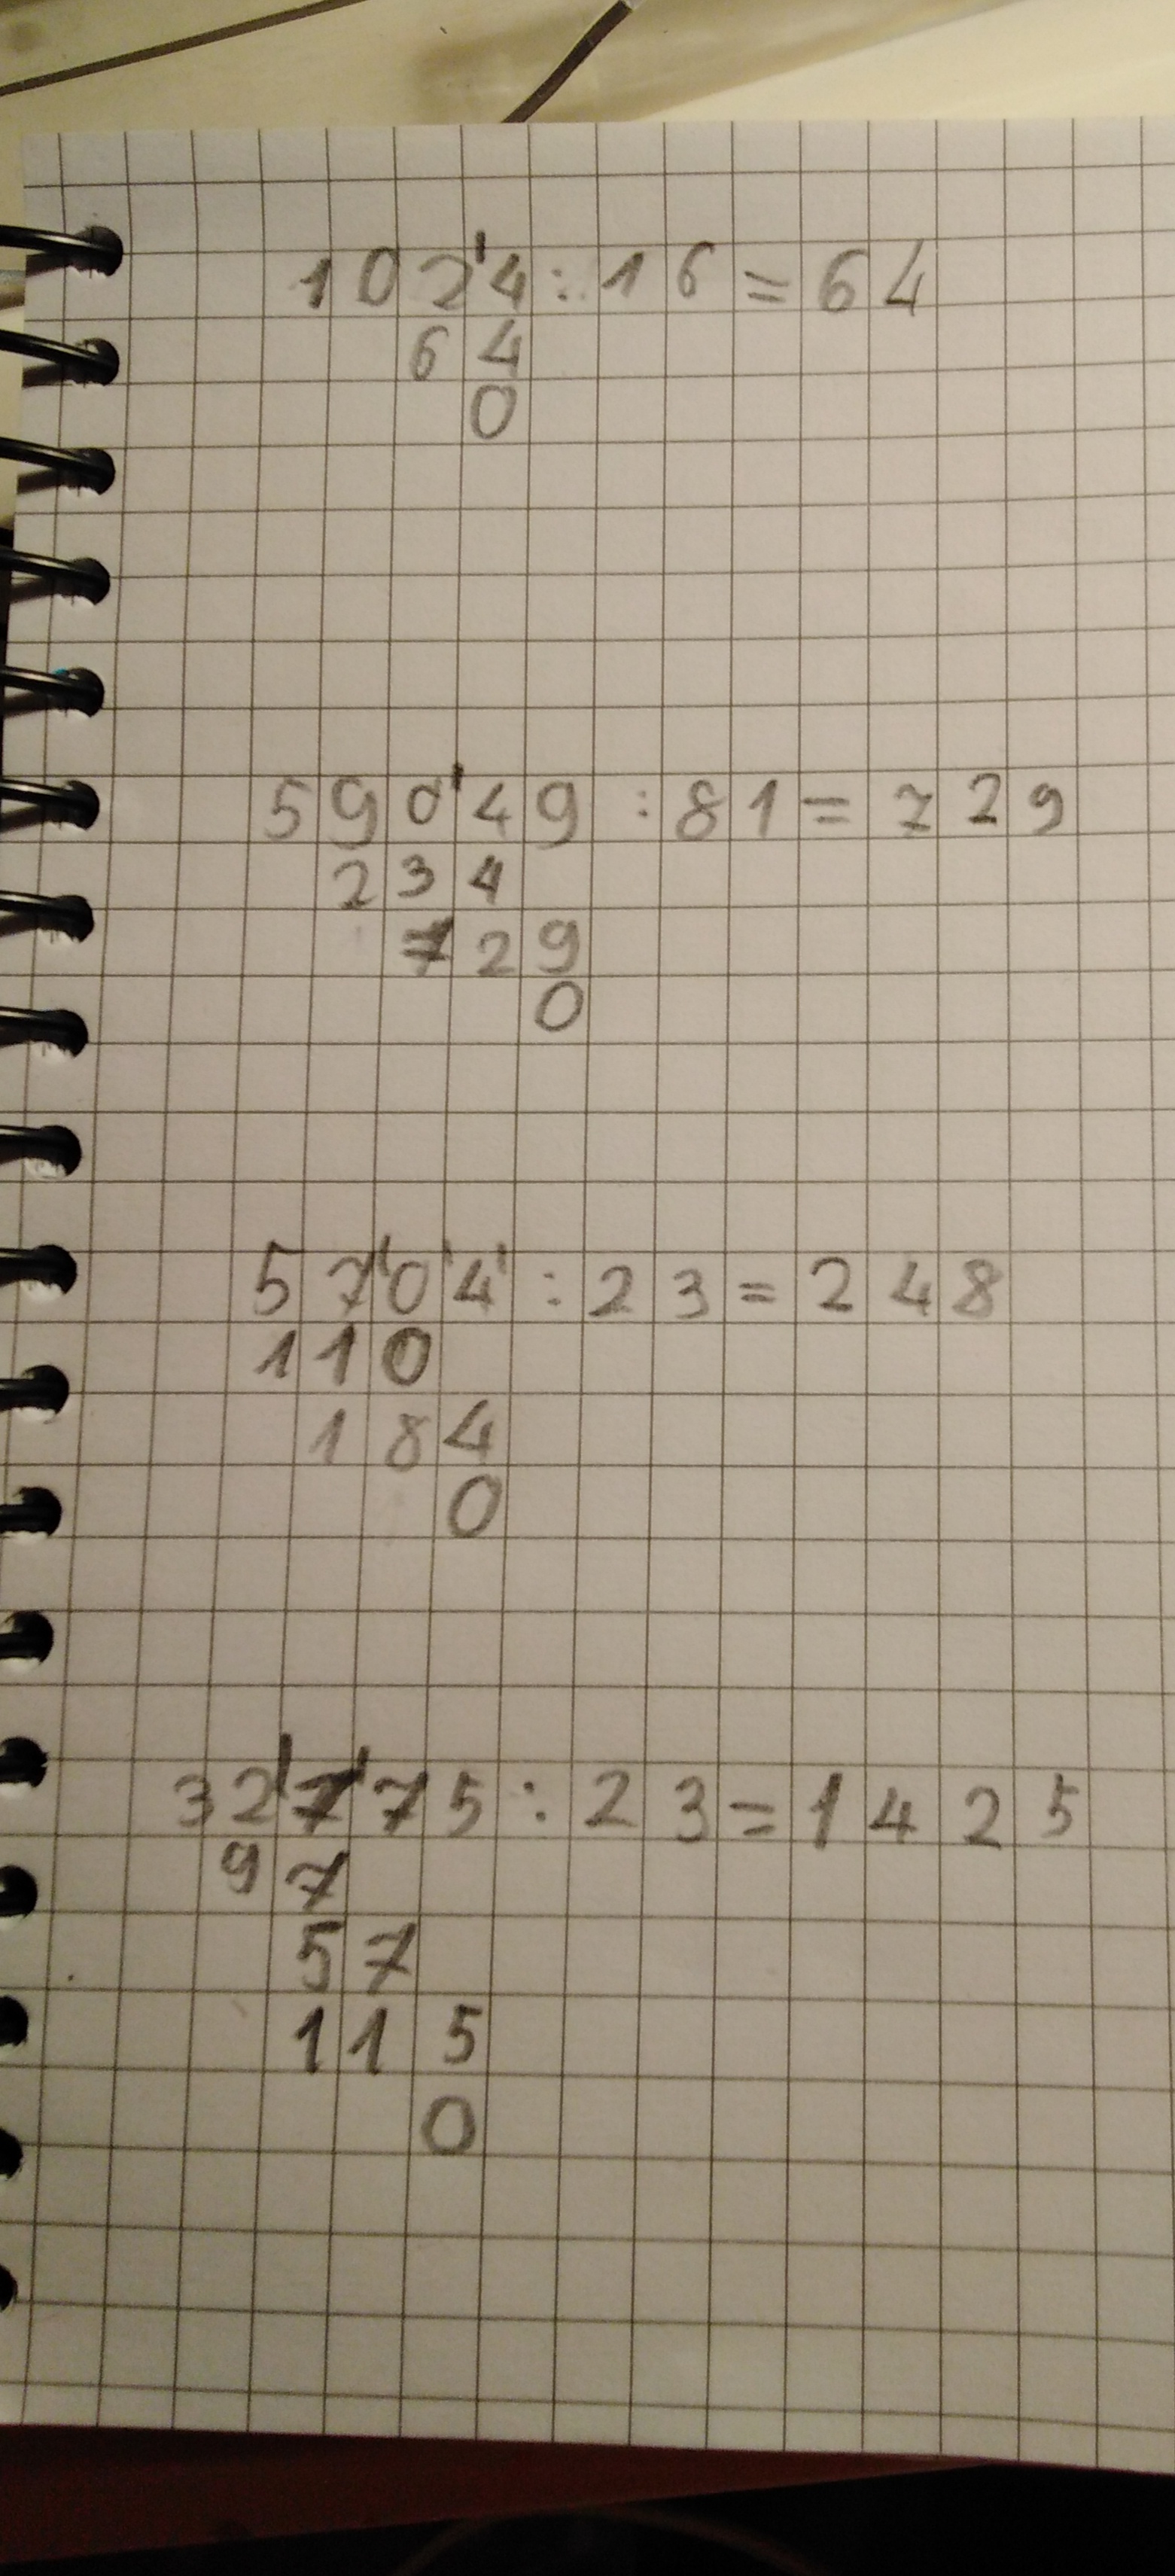 102'4:16=64
64
0
590'49:81=729
234
729
0
57'0'4':23=248
110
184
0
32'7'75:23=1425
97
57
115
0